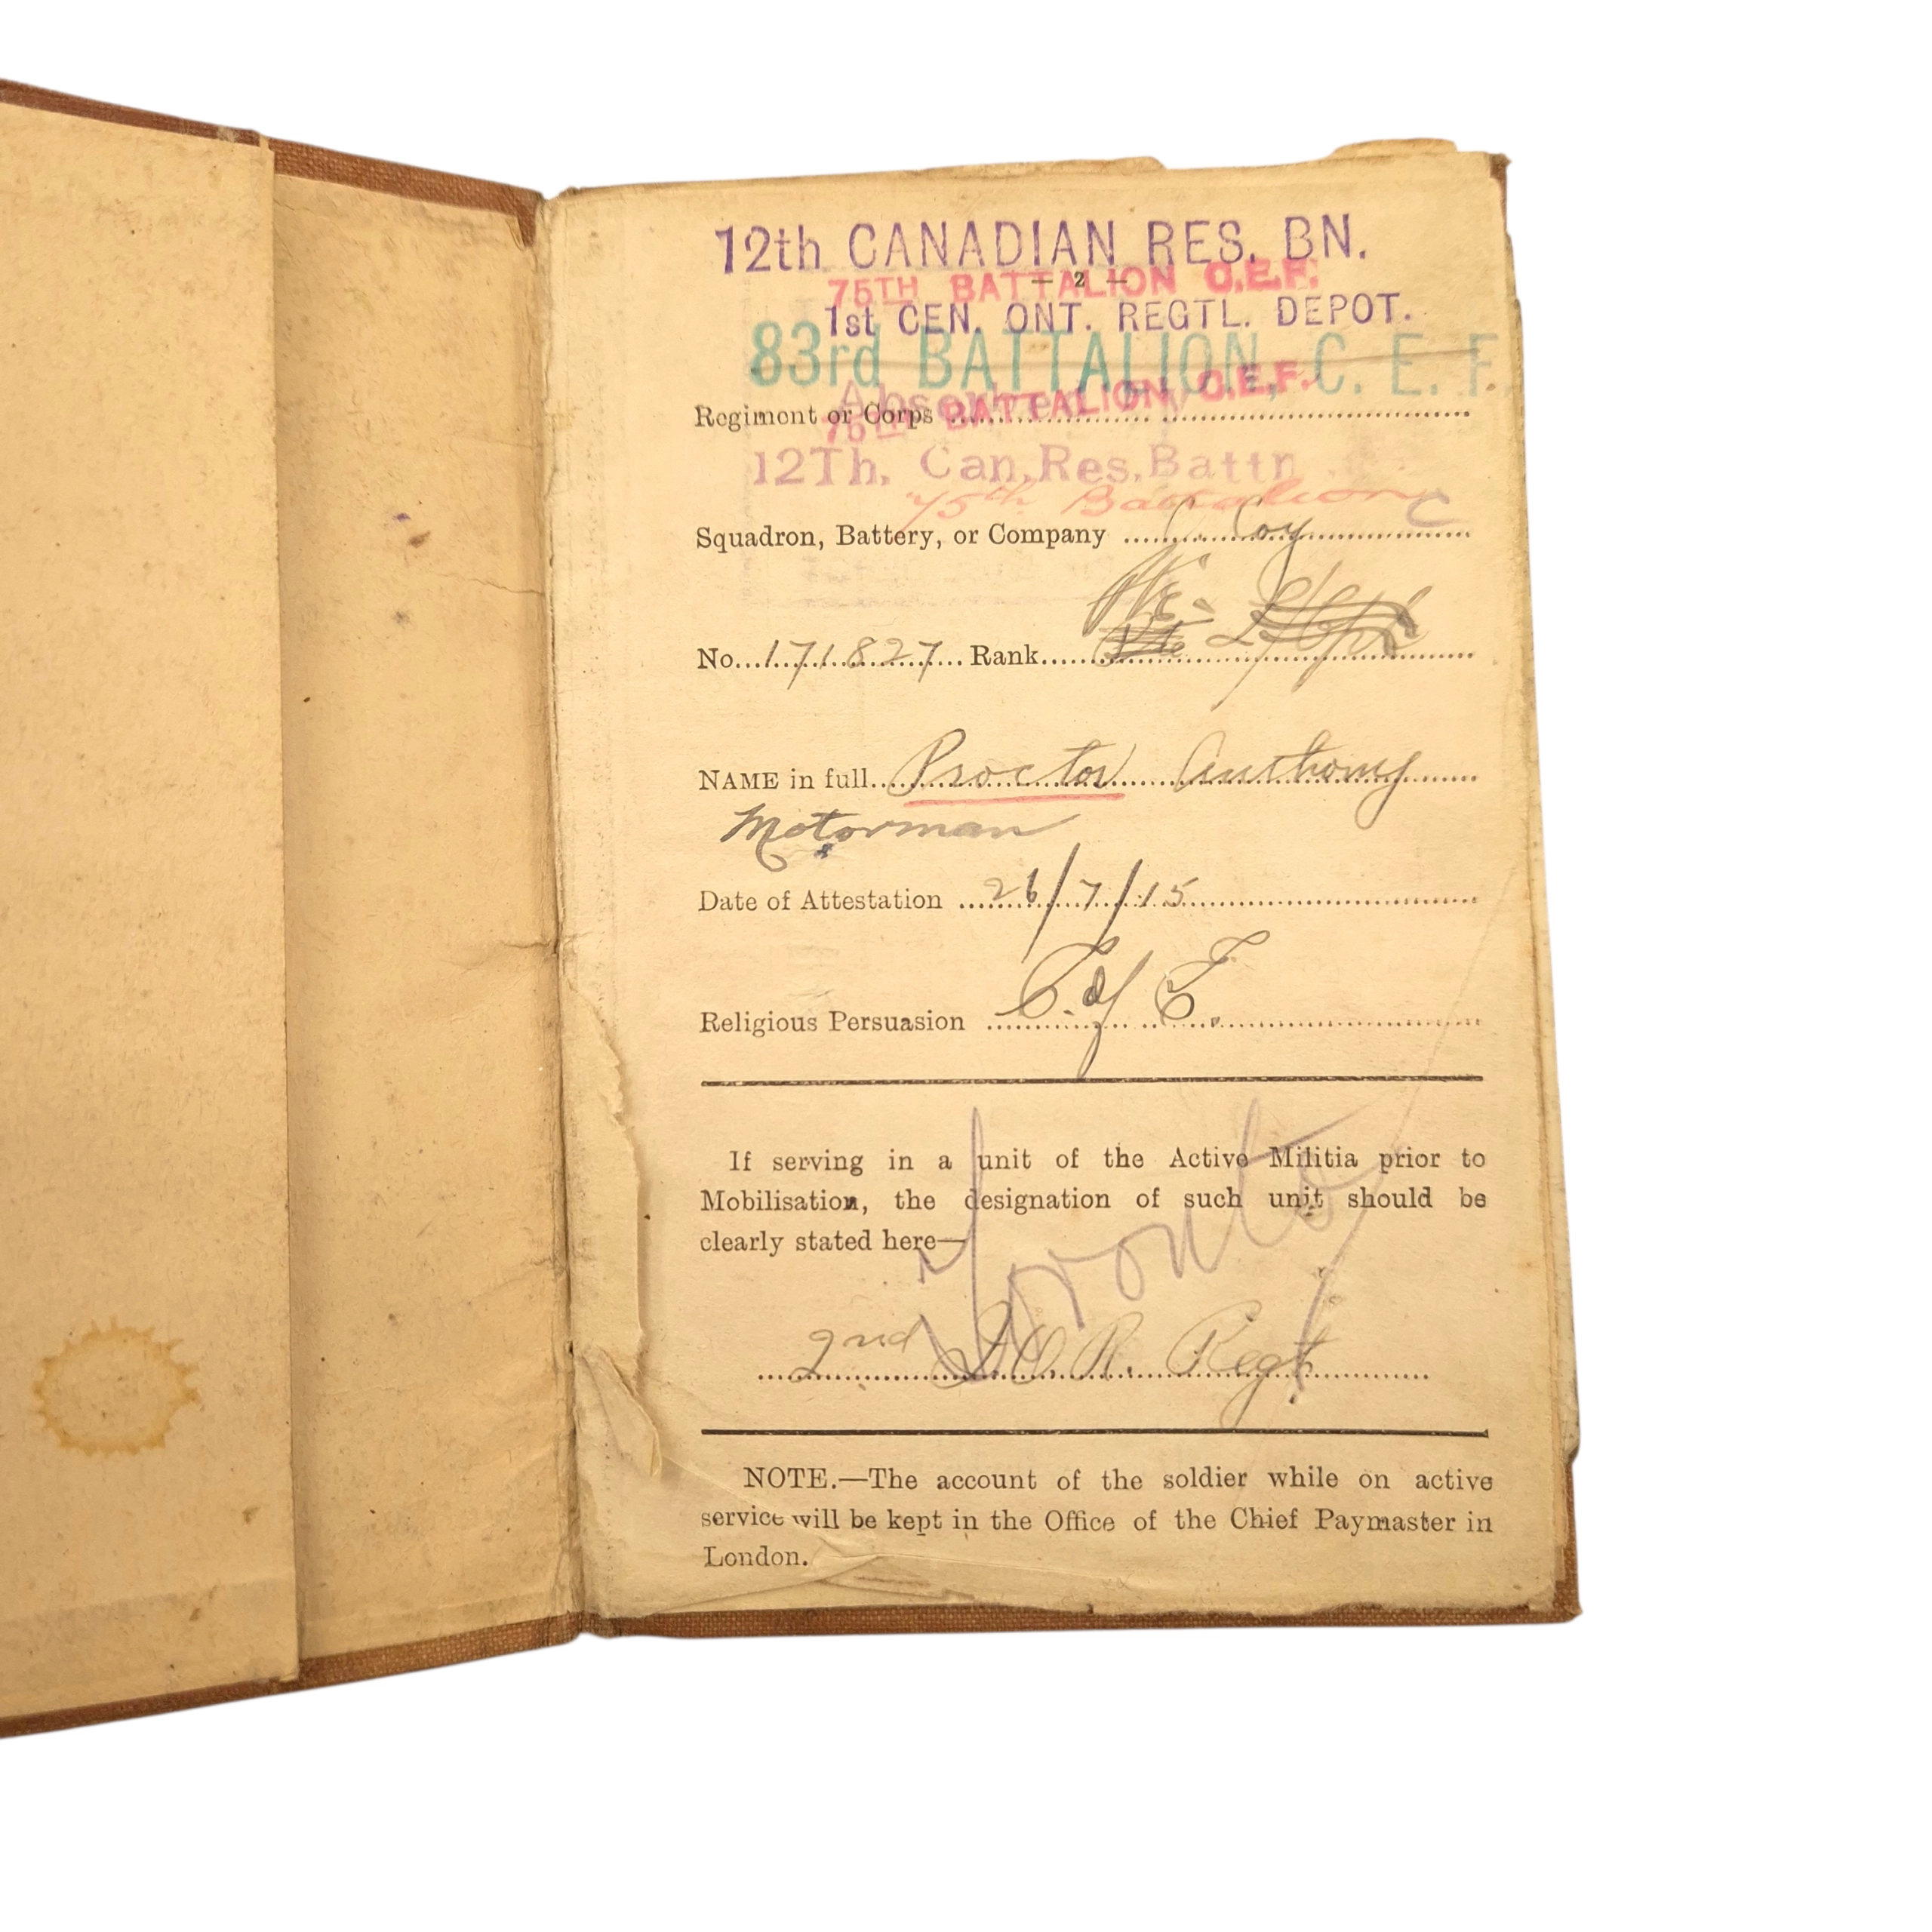 12th CANADIAN RES. BN.
— 2 —
75TH BATTALION C.E.F.
1st CEN. ONT. REGTL. DEPOT.
83rd BATTALION, C. E. F.
Absorbed
Regiment or Corps
75TH BATTALION, C.E.F.
12Th. Can.Res.Battn
75th Battalion C
Squadron, Battery, or Company C Coy
Pte.
No. 171827 Rank Pte
NAME in full Proctor Anthony
Motorman
Date of Attestation 26/7/15
Religious Persuasion C. of E.
If serving in a unit of the Active Militia prior to
Mobilisation, the designation of such unit should be
clearly stated here—
Toronto
2nd Q.O.R. Regt
NOTE.—The account of the soldier while on active
service will be kept in the Office of the Chief Paymaster in
London.